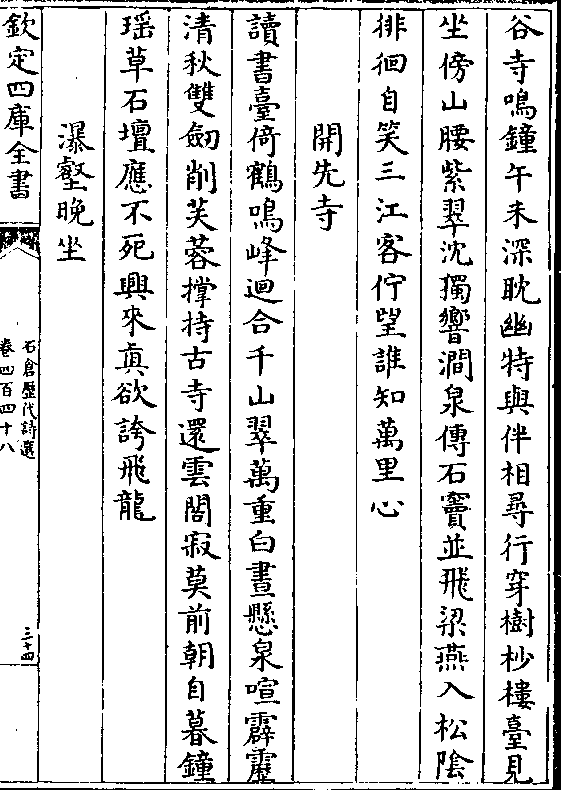 谷寺鳴鐘午未深耽幽特與伴相尋行穿樹杪樓臺見
坐傍山腰紫翠沈獨響澗泉傳石竇並飛梁燕入松陰
徘徊自笑三江客佇望誰知萬里心
開先寺
讀書臺倚鶴鳴峰迴合千山翠萬重白晝懸泉喧霹靂
清秋雙劒削芙蓉撑持古寺還雲閣寂莫前朝自暮鐘
瑶草石壇應不死興來真欲誇飛龍
瀑壑晚坐
欽定四庫全書
石倉歷代詩選
卷四百四十八
三十四